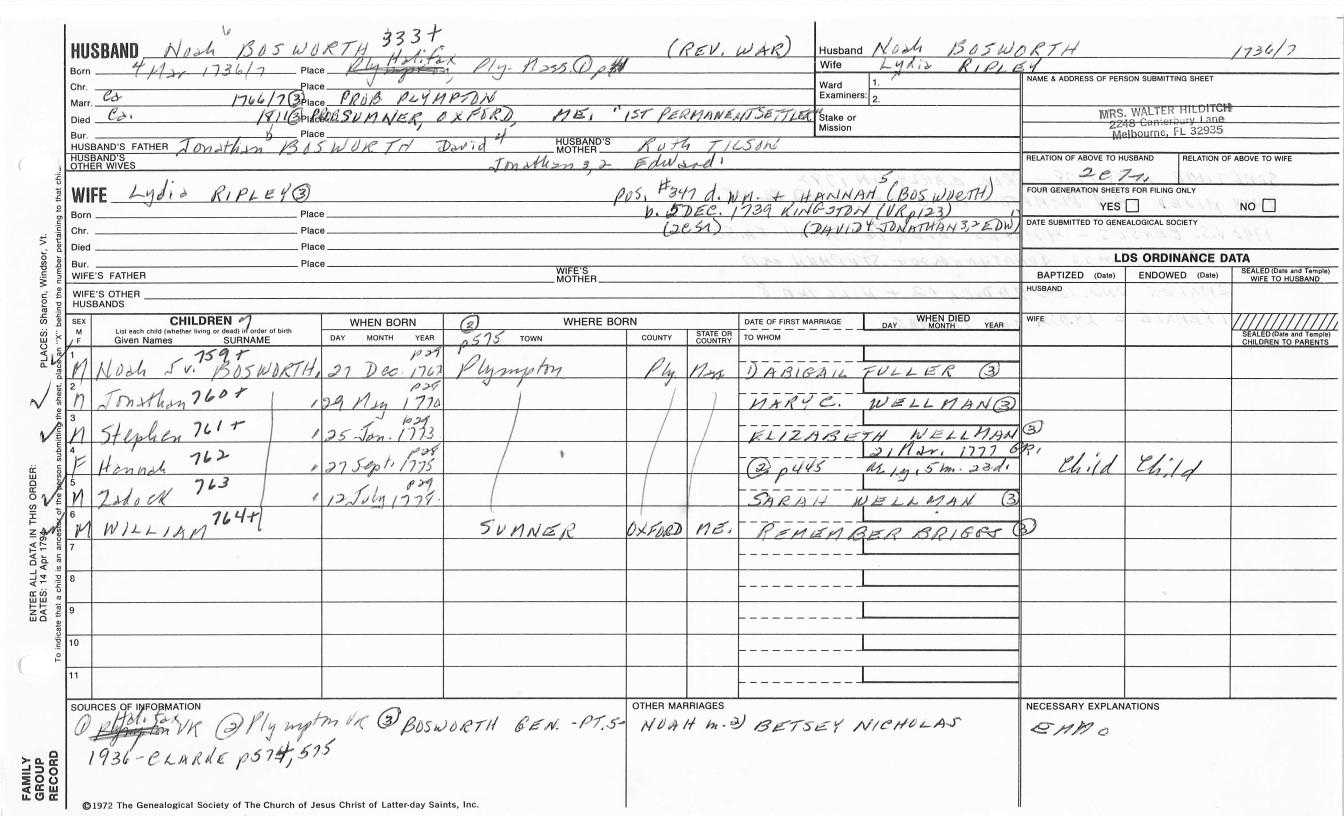 HUSBAND Noah 6 BOSWORTH 333+ (REV. WAR)
Husband Noah BOSWORTH 1736/7
Wife Lydia RIPLEY
Born 4 Mar 1736/7 Place Plympton Halifax, Ply. Mass. ① p
Chr. Place
Marr. Ca 1766/7 ③ Place PROB PLYMPTON
Died Ca. 1811 ③ Place PROB SUMNER, OXFORD, ME. "1ST PERMANENT SETTLER"
Bur. Place
Ward Examiners: 1. 2.
Stake or Mission
NAME & ADDRESS OF PERSON SUBMITTING SHEET
MRS. WALTER HILDITCH
2248 Canterbury Lane
Melbourne, FL 32935
HUSBAND'S FATHER Jonathan 5 BOSWORTH David 4 HUSBAND'S MOTHER Ruth TILSON
HUSBAND'S OTHER WIVES Jonathan 3,2 Edward 1
RELATION OF ABOVE TO HUSBAND 2C7r,
RELATION OF ABOVE TO WIFE
WIFE Lydia RIPLEY ③ POS, #347 d. Wm. + HANNAH 5 (BOSWORTH)
Born Place b. 5 DEC. 1739 KINGSTON (VR p123)
Chr. Place (2C5r) (DAVID 4 JONATHAN 3,2 EDW 1)
Died Place
Bur. Place
FOUR GENERATION SHEETS FOR FILING ONLY
YES NO
DATE SUBMITTED TO GENEALOGICAL SOCIETY
LDS ORDINANCE DATA
WIFE'S FATHER WIFE'S MOTHER
WIFE'S OTHER HUSBANDS
BAPTIZED (Date) ENDOWED (Date) SEALED (Date and Temple) WIFE TO HUSBAND
HUSBAND
WIFE
SEALED (Date and Temple) CHILDREN TO PARENTS
SEX M F CHILDREN 7 List each child (whether living or dead) in order of birth Given Names SURNAME
WHEN BORN DAY MONTH YEAR
② p575 WHERE BORN TOWN COUNTY STATE OR COUNTRY
DATE OF FIRST MARRIAGE TO WHOM
WHEN DIED DAY MONTH YEAR
1 M Noah Jr. 759+ BOSWORTH, 27 Dec. 1767 p29 Plympton Ply. Mass DABIGAIL FULLER ③
2 M Jonathan 760+ 29 May 1770 p29 MARY C. WELLMAN ③
3 M Stephen 761+ 25 Jan. 1773 p29 ELIZABETH WELLMAN ③
4 F Hannah 762 27 Sept. 1775 p29 ② p445 21 Mar. 1777 GR. ae 1y, 5m. 23d. Child Child
5 M Zadock 763 12 July 1778. p29 SARAH WELLMAN ③
6 M WILLIAM 764+ SUMNER OXFORD ME. REMEMBER BRIGGS ③
7
8
9
10
11
SOURCES OF INFORMATION
① Plympton Halifax VR ② Plympton VR ③ BOSWORTH GEN. - PT. 5-
1936 - CLARKE p574, 575
OTHER MARRIAGES
NOAH m. 2) BETSEY NICHOLAS
NECESSARY EXPLANATIONS
©1972 The Genealogical Society of The Church of Jesus Christ of Latter-day Saints, Inc.
FAMILY GROUP RECORD
ENTER ALL DATA IN THIS ORDER:
DATES: 14 Apr 179
PLACES: Sharon, Windsor, Vt.
To indicate that a child is an ancestor of the person submitting the sheet, place an "X" behind the number pertaining to that chi